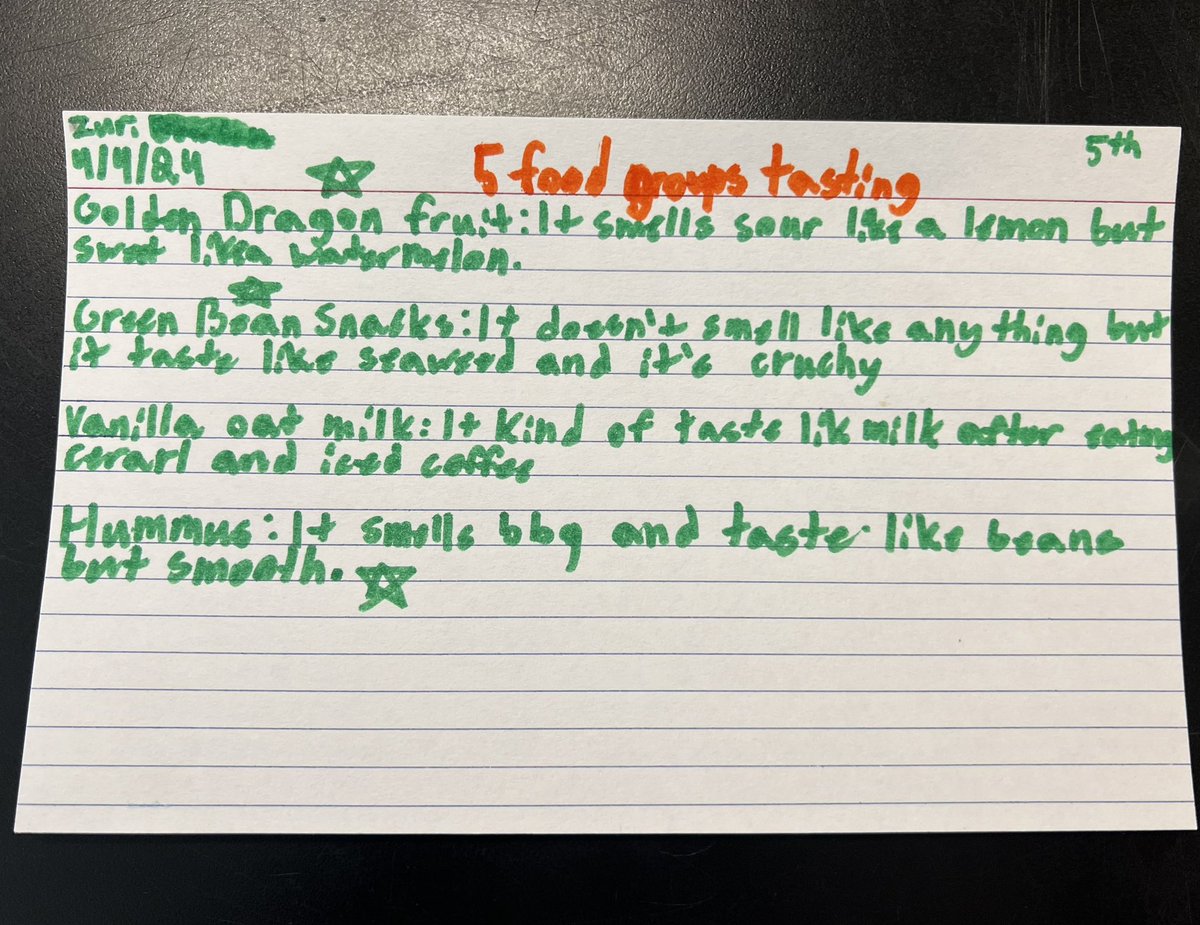 Zuri
4/4/24
5 food groups tasting
5th
Golden Dragon fruit: It smells sour like a lemon but
sweet like a watermelon.
Green Bean Snacks: It doesn't smell like any thing but
it taste like seaweed and it's cruchy
Vanilla oat milk: It kind of taste lik milk after eating
cerarl and iced coffee
Hummus: It smells bbq and taste like beans
but smooth.